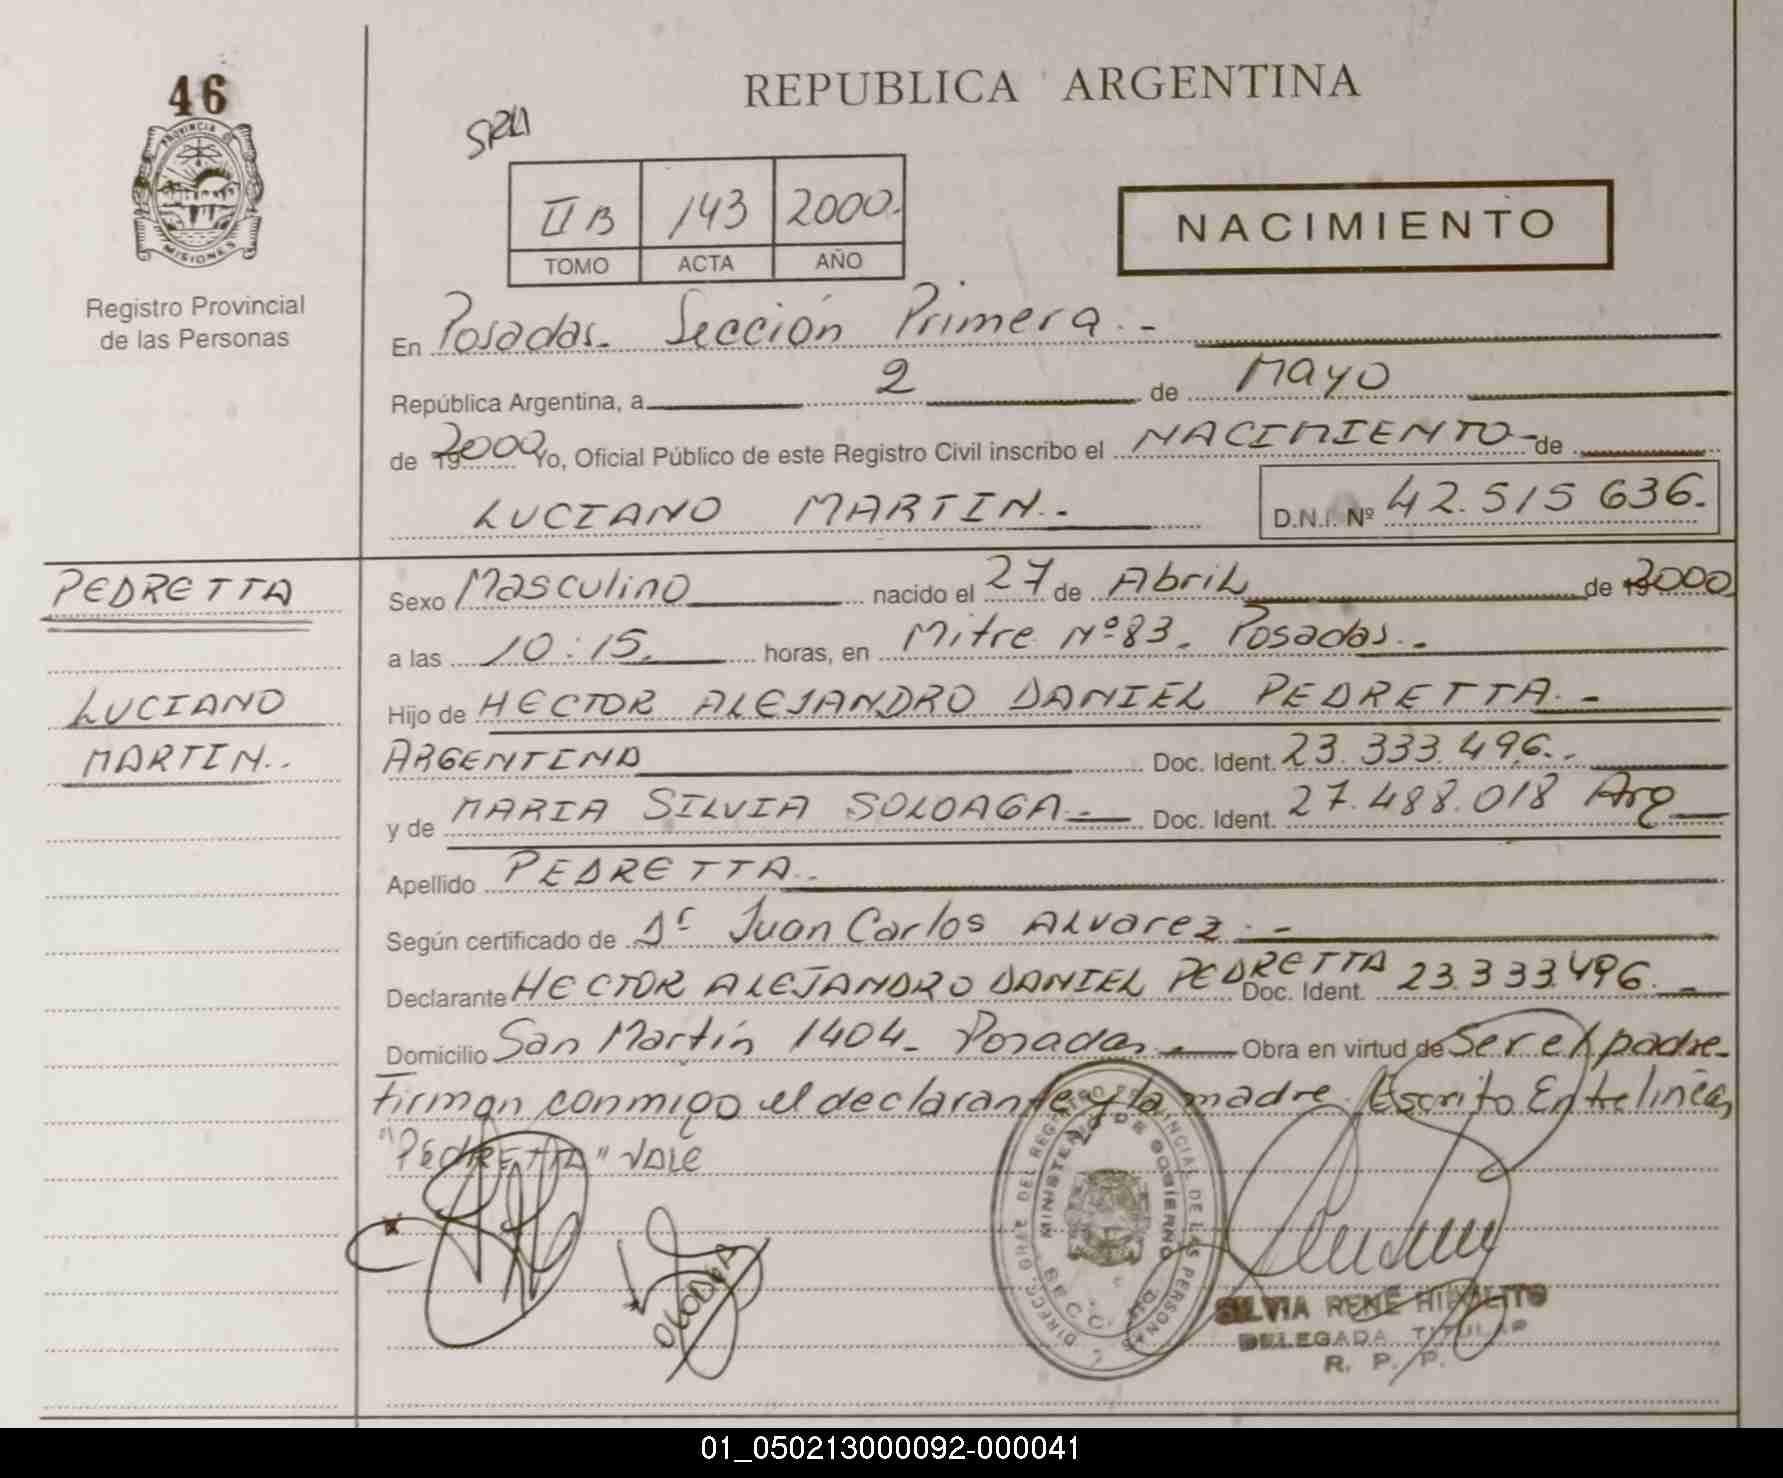 46
PROVINCIA
MISIONES
Registro Provincial
de las Personas
REPUBLICA ARGENTINA
II B 143 2000.
TOMO ACTA AÑO
NACIMIENTO
En Posadas. Sección Primera.-
República Argentina, a 2 de Mayo
de 2000 Yo, Oficial Público de este Registro Civil inscribo el NACIMIENTO- de
LUCIANO MARTIN.- D.N.I. Nº 42.515 636.
PEDRETTA
LUCIANO
MARTIN..
Sexo Masculino nacido el 27 de Abril de 2000
a las 10:15. horas, en Mitre Nº 83. Posadas.-
Hijo de HECTOR ALEJANDRO DANIEL PEDRETTA.-
ARGENTINA Doc. Ident. 23.333.496..
y de MARIA SILVIA SOLOAGA.- Doc. Ident. 27.488.018 Arg
Apellido PEDRETTA.
Según certificado de Dr Juan Carlos Alvarez.-
Declarante HECTOR ALEJANDRO DANIEL PEDRETTA Doc. Ident. 23.333.496.-
Domicilio San Martín 1404- Posadas.- Obra en virtud de Ser el padre-
Firman conmigo el declarante y la madre. Escrito Entrelineas
"PEDRETTA" VALE
DIRECC. GRAL. DEL REGISTRO PROVINCIAL DE LAS PERSONAS
MINISTERIO DE GOBIERNO
SILVIA RENÉ HIPOLITO
DELEGADA TITULAR
R. P. P.
01_050213000092-000041